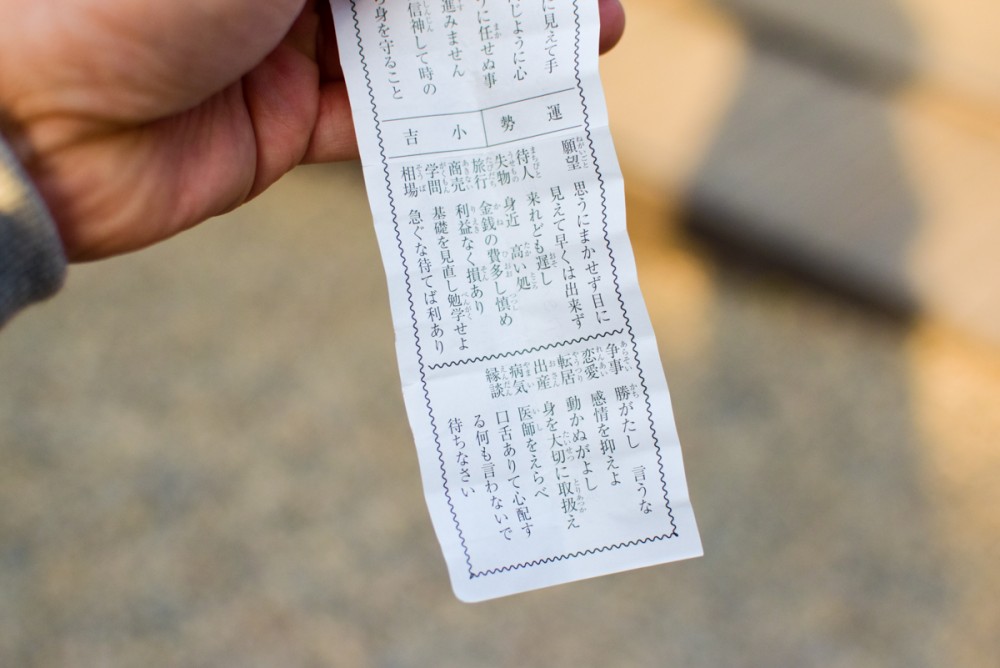 に見えて手
じように心
りに任せぬ事
進みません
信神して時の
身を守ること
運勢 小吉
願望 思うにまかせず目に
見えて早くは出来ず
待人 来れども遅し
失物 身近 高い処
旅行 金銭の費多し慎め
商売 利益なく損あり
学問 基礎を見直し勉学せよ
相場 急ぐな待てば利あり
争事 勝がたし 言うな
恋愛 感情を抑えよ
転居 動かぬがよし
出産 身を大切に取扱え
病気 医師をえらべ
縁談 口舌ありて心配す
る何も言わないで
待ちなさい